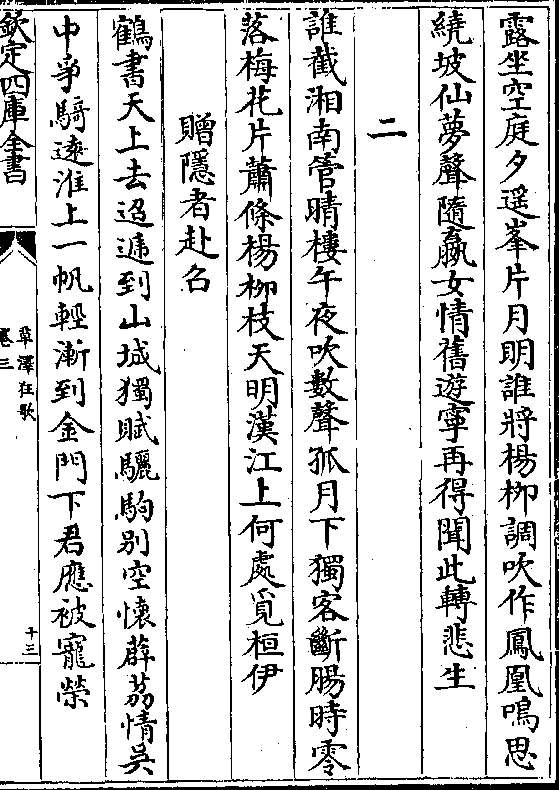 露坐空庭夕遥峯片月明誰將楊柳調吹作鳳凰鳴思
繞坡仙夢聲隨嬴女情舊遊寧再得聞此轉悲生
二
誰截湘南管晴樓午夜吹數聲孤月下獨客斷腸時零
落梅花片蕭條楊柳枝天明漢江上何處覓桓伊
贈隱者赴召
鶴書天上去迢遞到山城獨賦驪駒别空懷薜荔情吳
中爭騎遠淮上一帆輕漸到金門下君應被寵榮
欽定四庫全書
草澤狂歌
卷三
十三